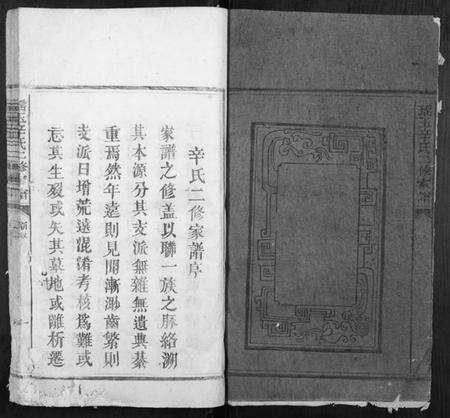 辛氏二修家譜序
家譜之修蓋以聯一族之脉絡溯
其本源分其支派無雜無遺典綦
重焉然年遠則見聞漸渺齒繁則
支派日增荒遠混淆考核爲難或
忘其生殁或失其墓地或離析遷